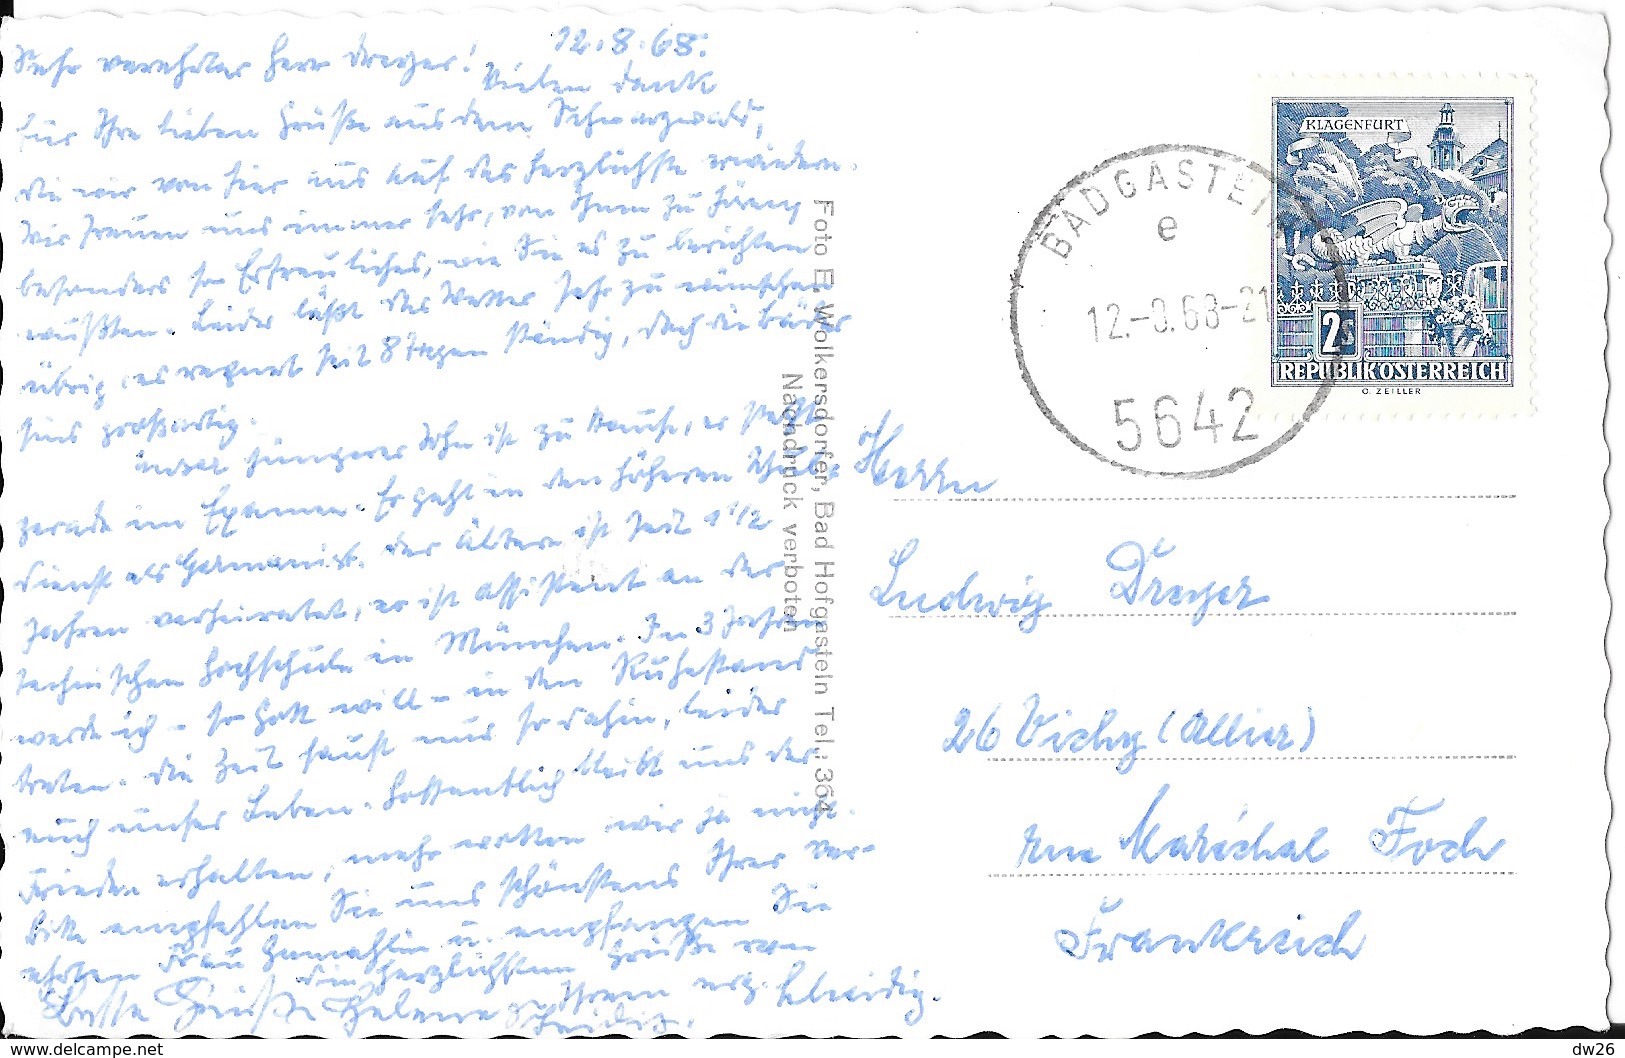 12.8.68.
Sehr verehrter Herr Dreyer! Vielen Dank
für Ihre lieben Grüße aus dem Schwarzwald,
die wir von hier aus auf das herzlichste erwidern.
Wir freuen uns immer sehr, von Ihnen zu hören,
besonders so Erfreuliches, wie Sie es zu berichten
wußten. Leider läßt das Wetter sehr zu wünschen
übrig, es regnet seit 8 Tagen ständig, doch die Bäder
sind großartig.
Unser jüngerer Sohn ist zu Hause, er steht
gerade im Examen. Er geht in den höheren Schul-
dienst als Germanist. Der Ältere ist seit 1 1/2
Jahren verheiratet, er ist Assistent an der
technischen Hochschule in München. In 3 Jahren
werde ich - so Gott will - in den Ruhestand
treten. Die Zeit saust nur so dahin, leider
auch unser Leben. Hoffentlich bleibt uns der
Frieden erhalten, mehr wollen wir ja nicht.
Bitte empfehlen Sie uns schönstens Ihrer ver-
ehrten Frau Gemahlin u. empfangen Sie
die herzlichsten Grüße von
Ihrem erg.
Beste Grüße Helene
Foto E. Wolkersdorfer, Bad Hofgastein Tel.: 364
Nachdruck verboten
KLAGENFURT
2s
REPUBLIK ÖSTERREICH
O. ZEILLER
BADGASTEIN
e
12.-8.68-21
5642
Herrn
Ludwig Dreyer
26 Vichy (Allier)
rue Maréchal Foch
Frankreich
dw26
www.delcampe.net